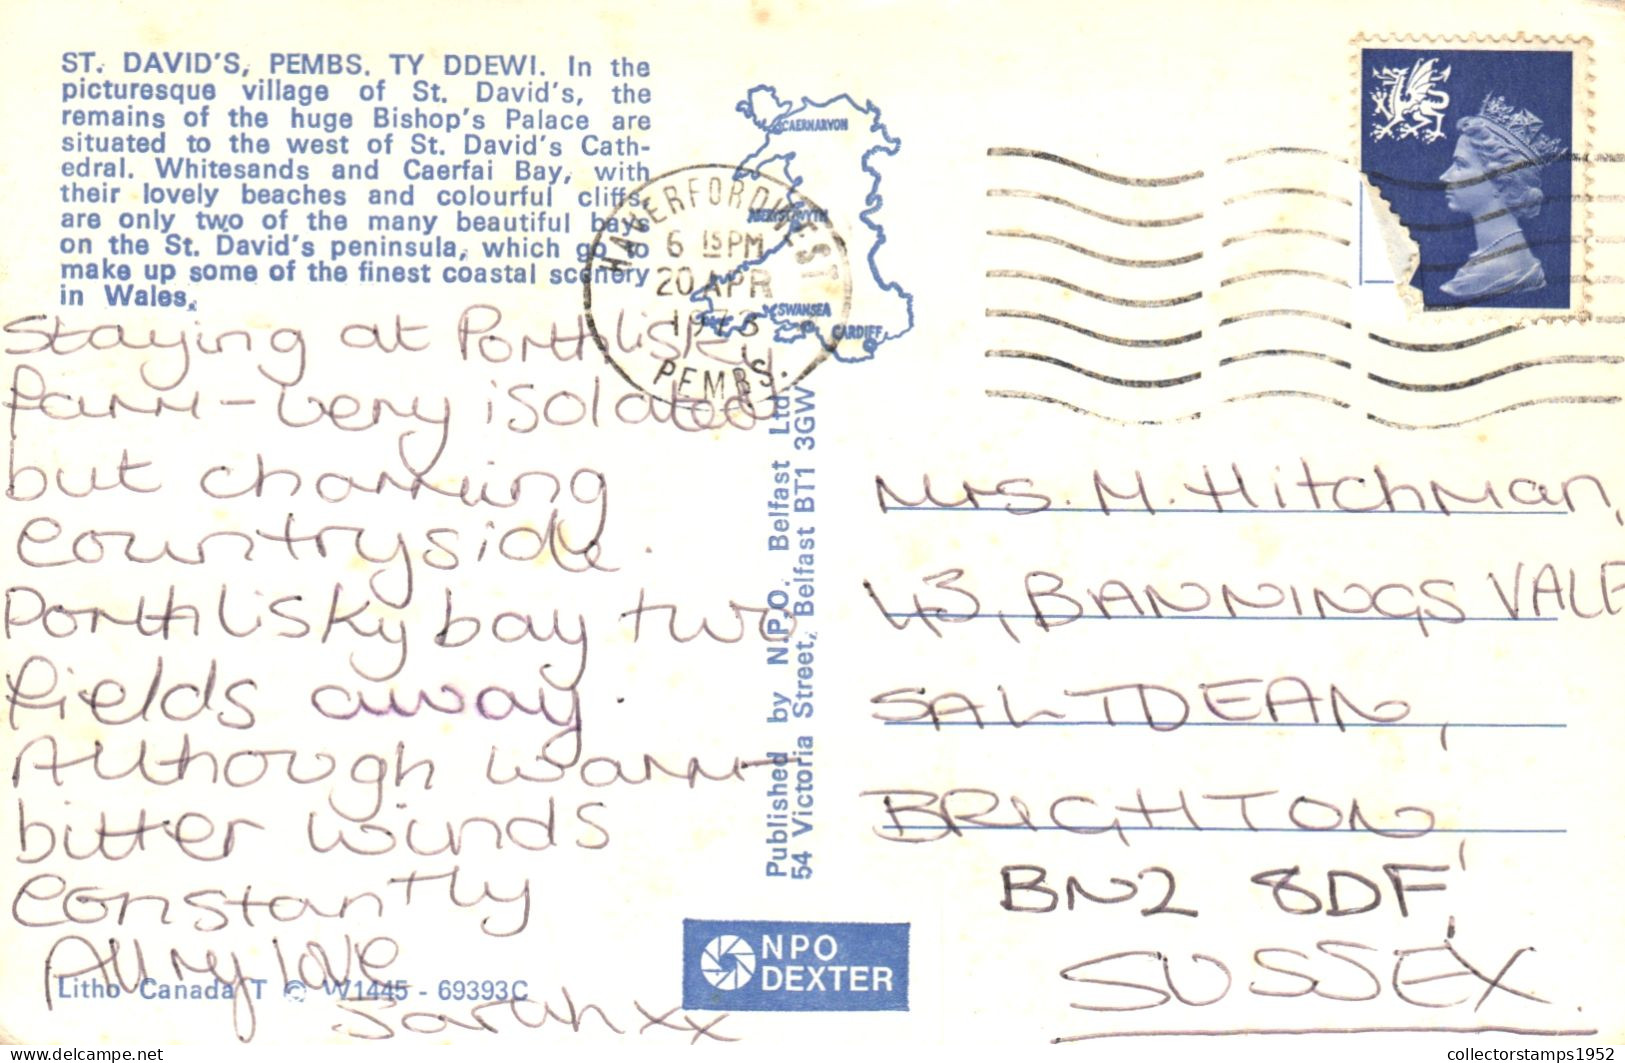 ST. DAVID'S, PEMBS. TY DDEWI. In the
picturesque village of St. David's, the
remains of the huge Bishop's Palace are
situated to the west of St. David's Cath-
edral. Whitesands and Caerfai Bay, with
their lovely beaches and colourful cliffs,
are only two of the many beautiful bays
on the St. David's peninsula, which go to
make up some of the finest coastal scenery
in Wales.
CAERNARVON
ABERYSTWYTH
SWANSEA
CARDIFF
HAVERFORDWEST
6 15 PM
20 APR
PEMBS.
Staying at Porthlisky
farm - very isolated
but charming
countryside.
Porthlisky bay two
fields away.
Although warm
bitter winds
constantly
All my love
Sarah xx
Litho Canada T © W1445 - 69393C
Published by N.P.O. Belfast Ltd.
54 Victoria Street, Belfast BT1 3GW
NPO
DEXTER
Mrs. M. Hitchman,
43, BANNINGS VALE
SALTDEAN,
BRIGHTON,
BN2 8DF,
SUSSEX.
https://www.delcampe.net
collectorstamps1952